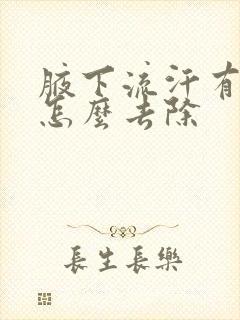 腋下流汗有
怎麼去除
長生長樂